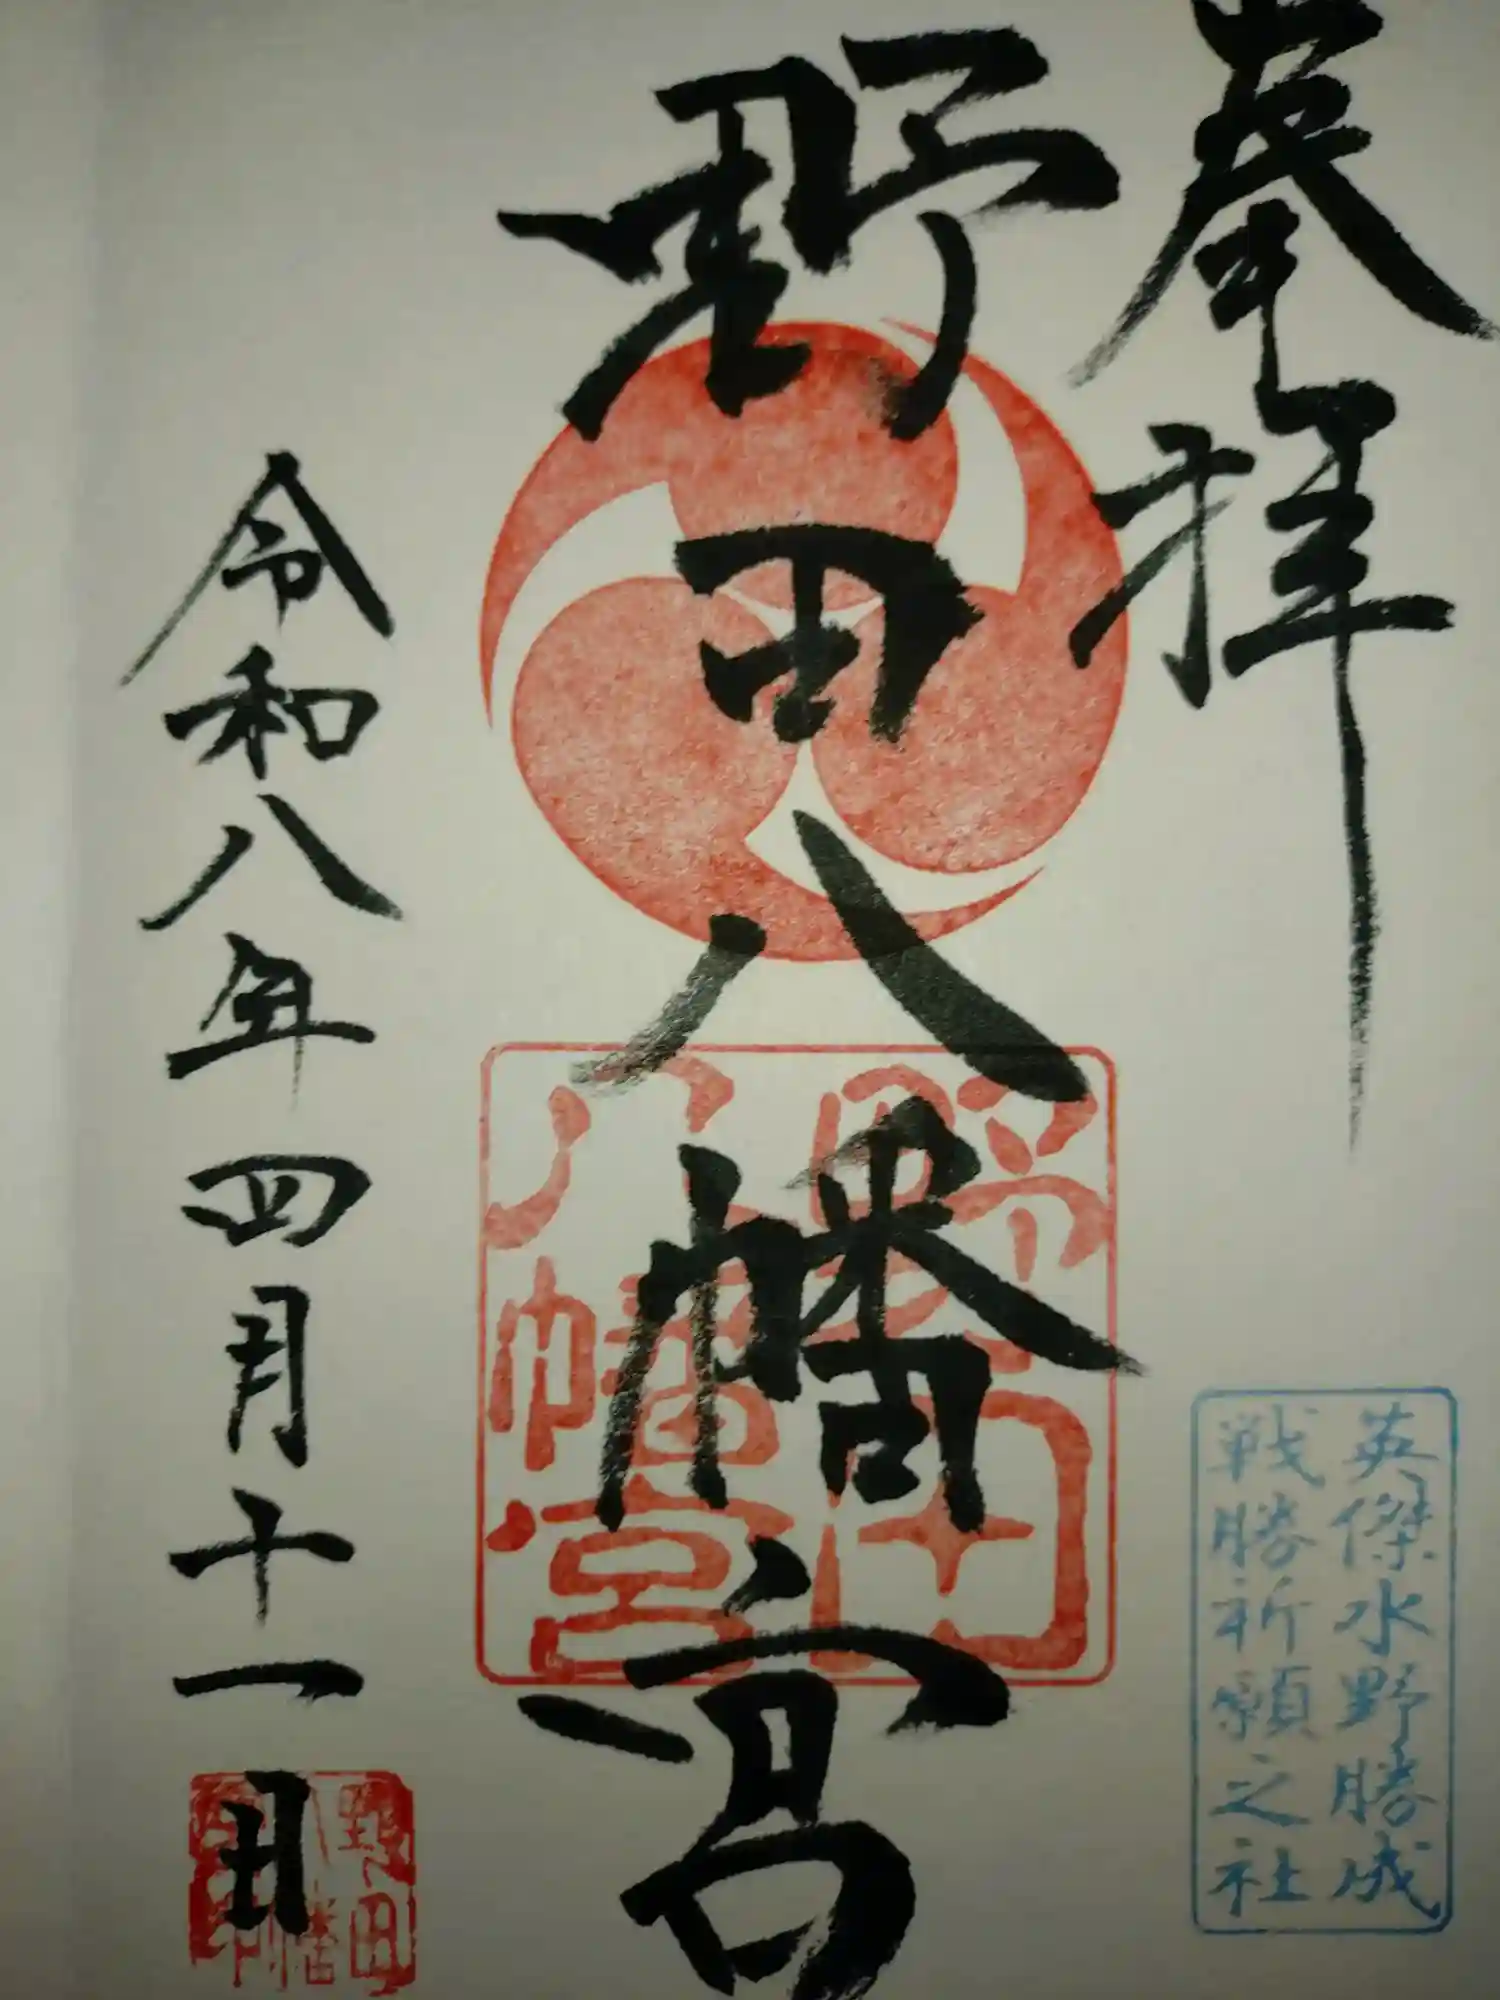 奉拝
英傑水野勝成
戦勝祈願之社
野田八幡宮
野田
八幡宮
令和八年四月十一日
野田
八幡
宮印